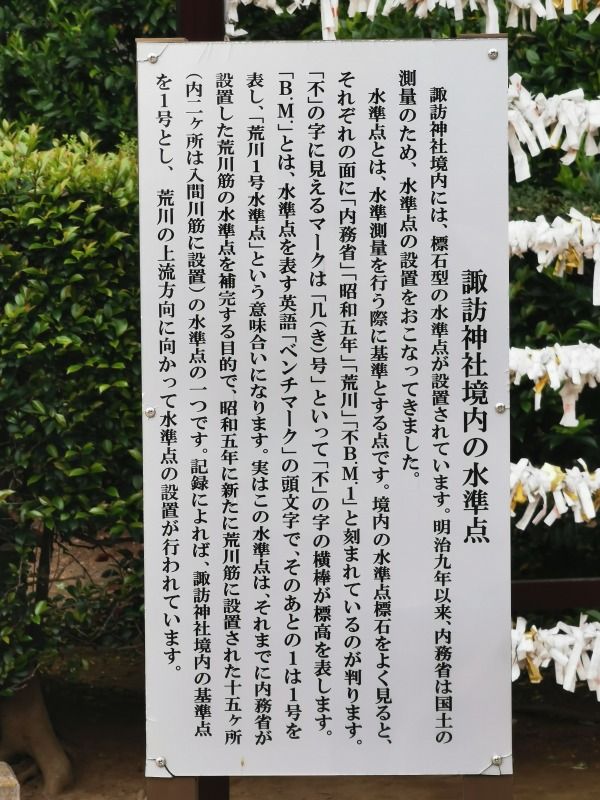 諏訪神社境内の水準点
諏訪神社境内には、標石型の水準点が設置されています。明治九年以来、内務省は国土の
測量のため、水準点の設置をおこなってきました。
水準点とは、水準測量を行う際に基準とする点です。境内の水準点標石をよく見ると、
それぞれの面に「内務省」「昭和五年」「荒川」「不B.M.1」と刻まれているのが判ります。
「不」の字に見えるマークは「几(き)号」といって「不」の字の横棒が標高を表します。
「B.M」とは、水準点を表す英語「ベンチマーク」の頭文字で、そのあとの1は1号を
表し、「荒川1号水準点」という意味合いになります。実はこの水準点は、それまでに内務省が
設置した荒川筋の水準点を補完する目的で、昭和五年に新たに荒川筋に設置された十五ヶ所
(内二ヶ所は入間川筋に設置)の水準点の一つです。記録によれば、諏訪神社境内の基準点
を1号とし、荒川の上流方向に向かって水準点の設置が行われています。